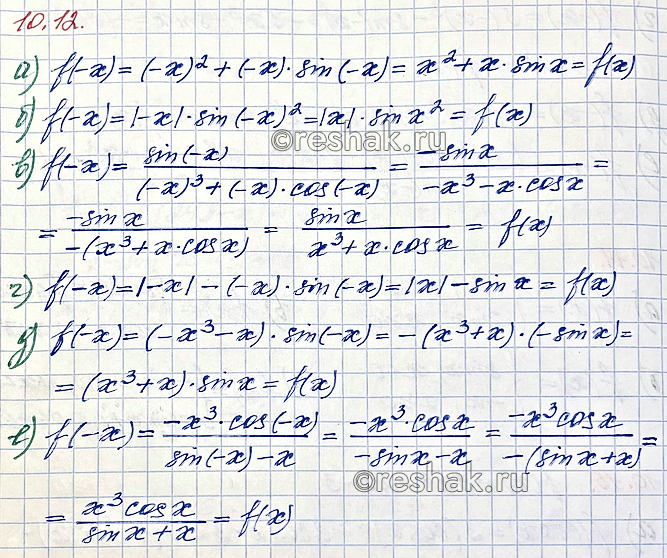 10.12.
а) f(-x) = (-x)² + (-x)·sin(-x) = x² + x·sinx = f(x)
б) f(-x) = |-x|·sin(-x)² = |x|·sin x² = f(x)
©reshak.ru
в) f(-x) = sin(-x) / ((-x)³ + (-x)·cos(-x)) = -sinx / (-x³ - x·cosx) =
= -sinx / (-(x³ + x·cosx)) = sinx / (x³ + x·cosx) = f(x)
г) f(-x) = |-x| - (-x)·sin(-x) = |x| - sin x = f(x)
д) f(-x) = (-x³ - x)·sin(-x) = -(x³ + x)·(-sinx) =
= (x³ + x)·sinx = f(x)
е) f(-x) = -x³·cos(-x) / (sin(-x) - x) = -x³·cosx / (-sinx - x) = -x³cosx / (-(sinx + x)) =
©reshak.ru
= x³cosx / (sinx + x) = f(x)